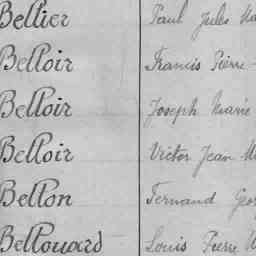 Bellier Paul Jules
Belloir Francis Pierre
Belloir Joseph Marie
Belloir Victor Jean
Bellon Fernand
Bellouard Louis Pierre